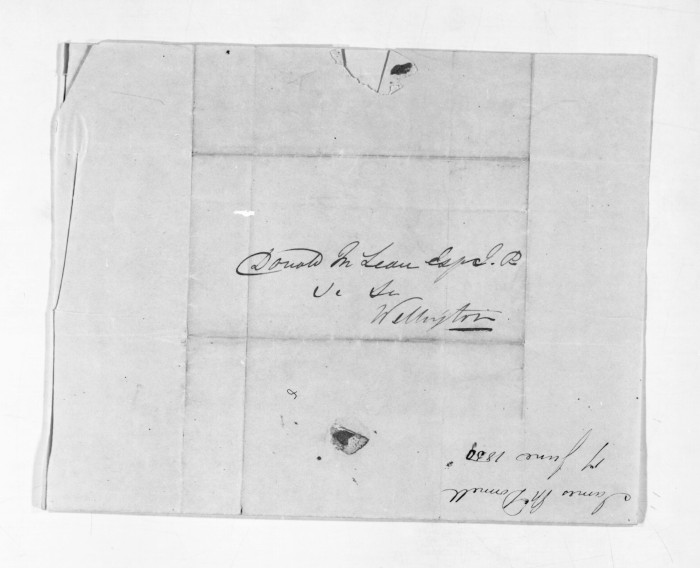 Donald McLean Esqr J. P.
&c &c
Wellington
James McDonnell
17 June 1850